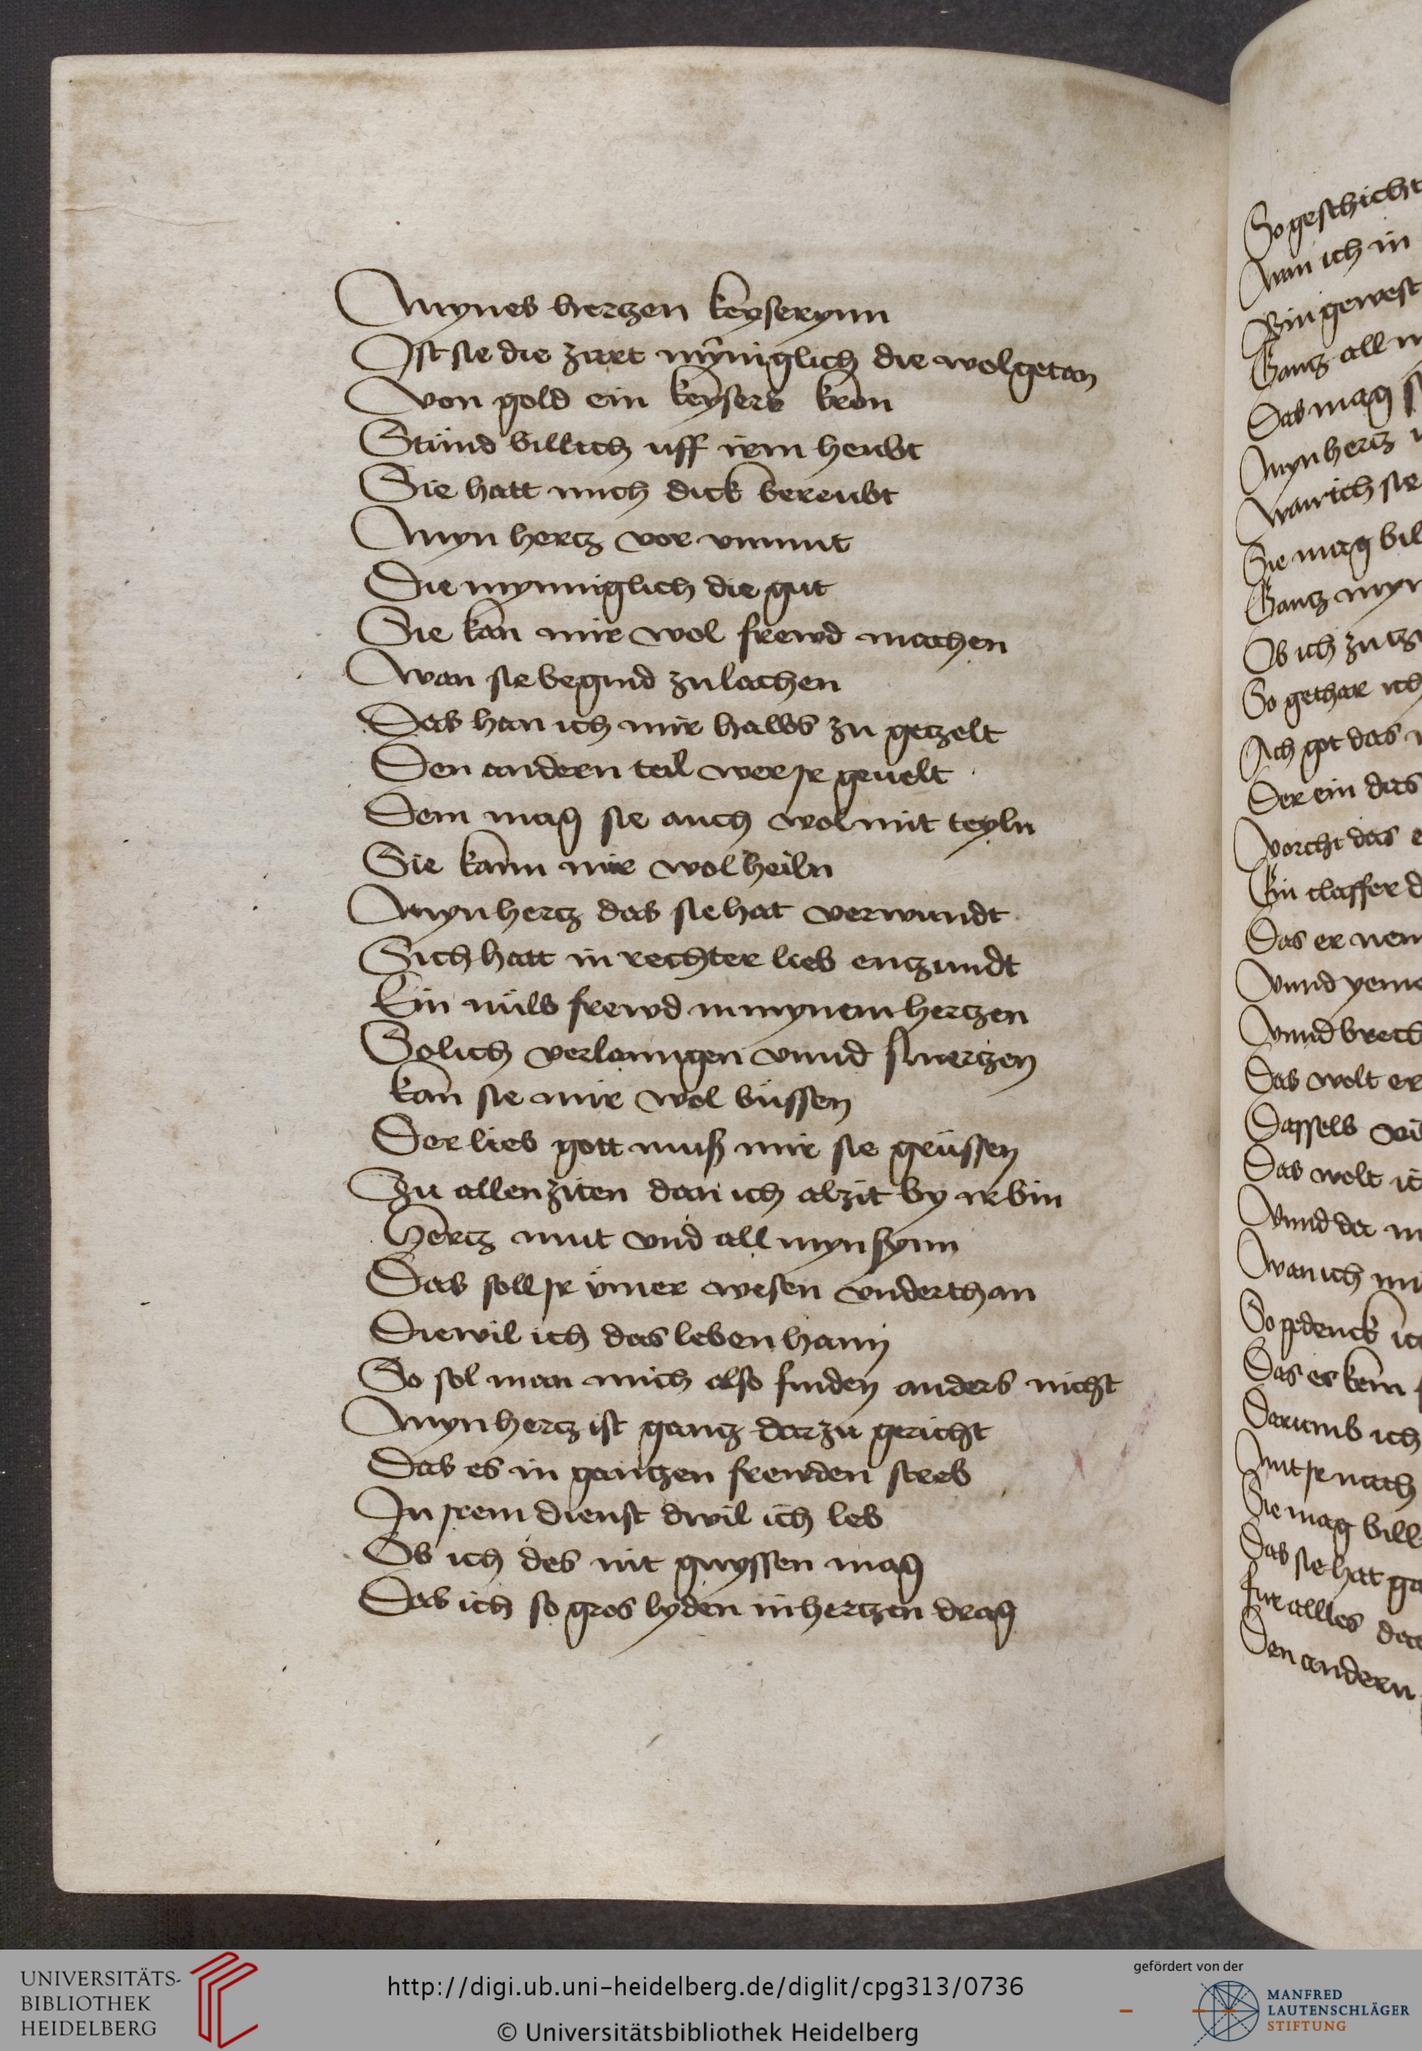 Mynes hertzen keyserynn
Ist sie die zart mỹniglich die wolgetan
Von gold ein keysers kron
Stünd billich uff irem heubt
Sie hatt mich dick bereubt
Myn hertz vor vnmut
Die mynniglich die gut
Sie kan mir wol frewd machen
Wan sie begind zu lachen
Das han ich mir halbs zu getzelt
Den andern teil wer ir geuelt
Dem mag sie auch wol mit teyln
Sie kann mir wol heiln
Myn hertz das sie hat verwundt
Sich hatt in rechter lieb entzundt
Ein nüwe frewd in mynem hertzen
Solich verlanngen vnnd smertzen
kan sie mir wol büssen
Der lieb gott muß mir sie grüssen
Zu allen ziten dan ich alzit by ir bin
Hertz mut vnd all myn synn
Das soll ir ymer wesen vnderthan
Die wil ich das leben hann
So sol man mich also finden anders nicht
Myn hertz ist gantz dar zu gericht
Das es in gantzen frewden streb
In irem dienst dwil ich leb
Ob ich des nit gnyssen mag
Das ich so gros lyden in hertzen drag
So geschicht
Wan ich in
Bin gewest
Gantz all
Das mag
Myn hertz
Wan ich sie
Sie mag bil
Gantz myn
Ob ich zu
So gethar ich
Ach got das
Der ein das
Vorcht das
Ein claffer
Das er nem
Vnnd yeme
Vnnd brech
Das wolt er
Dasselb
Das wolt
Vnnd der
Wan ich
So gedenck
Das es kem
Darumb ich
Mit ir nach
Sie mag bill
Das sie hat
Fur alles
Den andern
UNIVERSITÄTS-
BIBLIOTHEK
HEIDELBERG
http://digi.ub.uni-heidelberg.de/diglit/cpg313/0736
© Universitätsbibliothek Heidelberg
gefördert von der
MANFRED
LAUTENSCHLÄGER
STIFTUNG